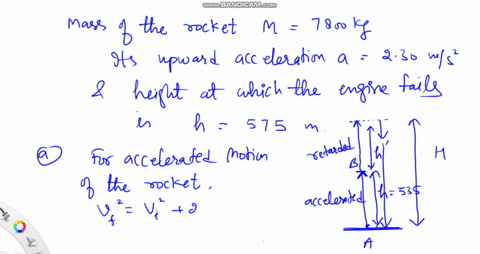 WWW.BANDICAM.COM
Mass of the rocket M = 7800 kg
Its upward acceleration a = 2.30 m/s²
& height at which the engine fails
is h = 575 m.
(a) For accelerated motion
of the rocket,
V_f² = V_i² + 2
retarded
h'
H
B
accelerated
h = 535
A